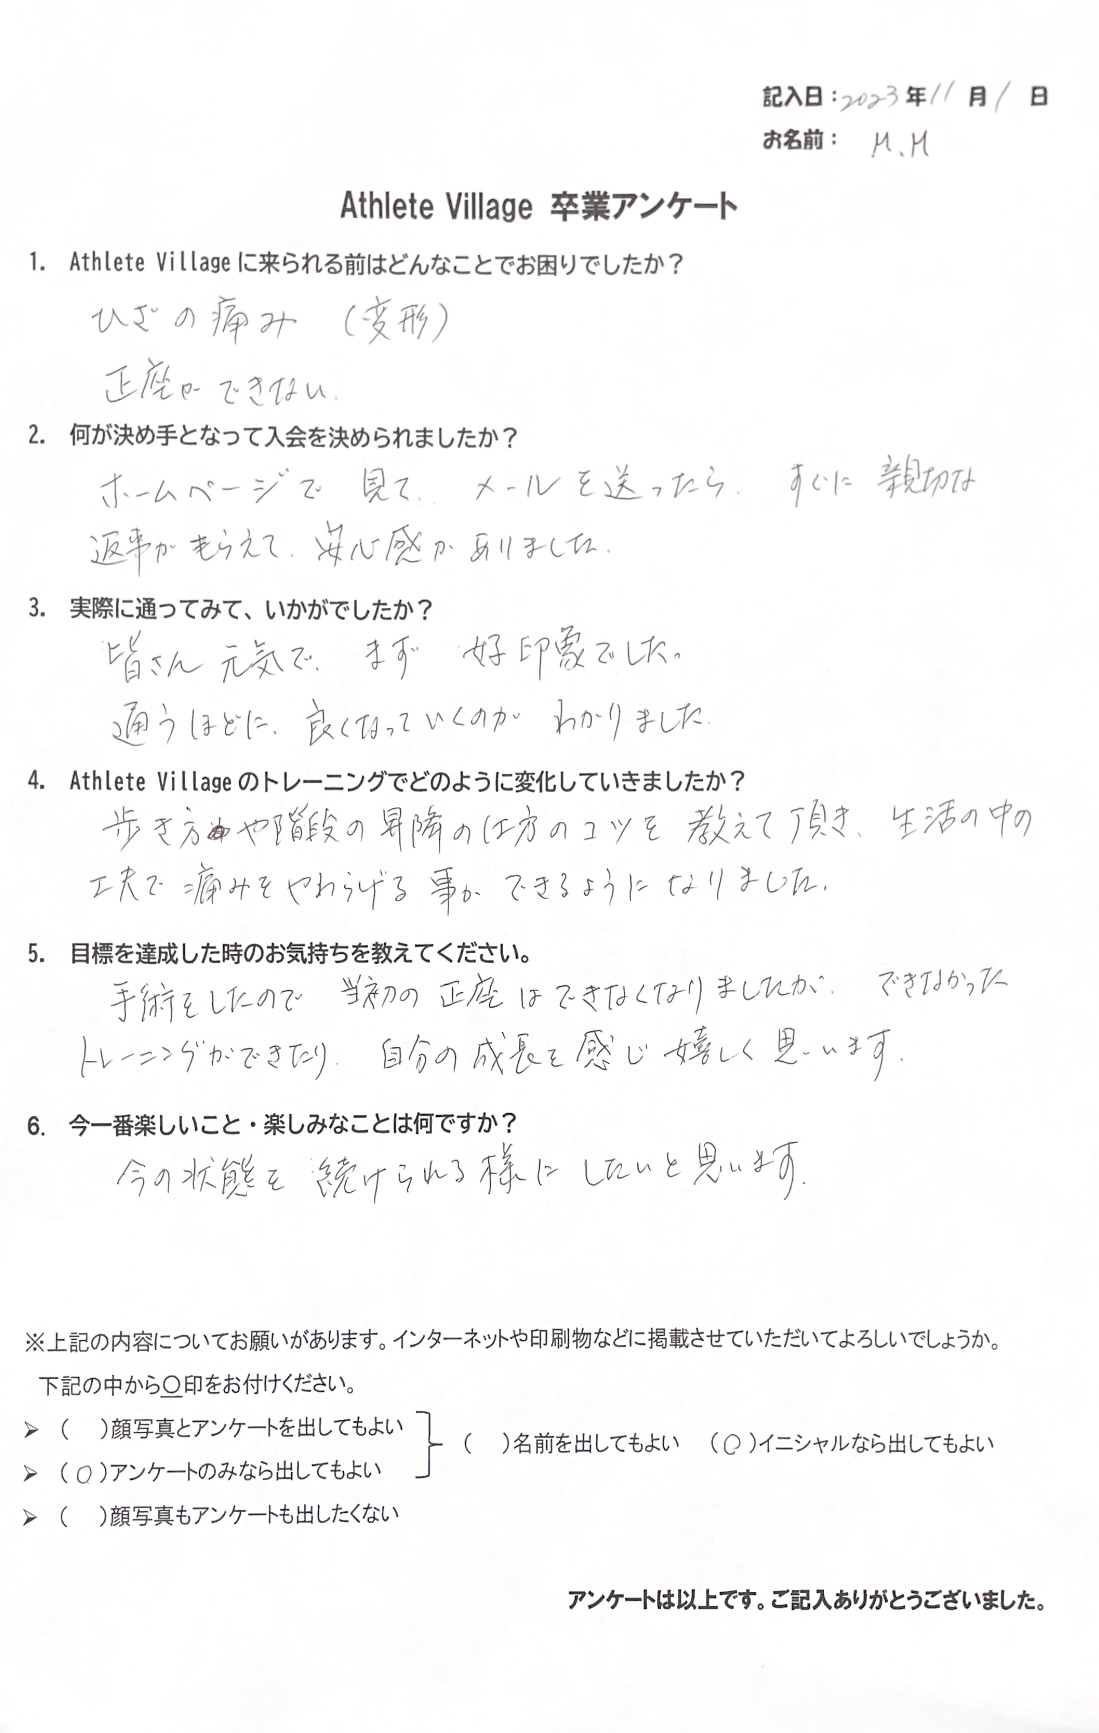 記入日：2023年11月1日
お名前： M.M
Athlete Village 卒業アンケート
1. Athlete Villageに来られる前はどんなことでお困りでしたか？
ひざの痛み （変形）
正座ができない.
2. 何が決め手となって入会を決められましたか？
ホームページで 見て、メールを送ったら、すぐに親切な
返事がもらえて、安心感がありました.
3. 実際に通ってみて、いかがでしたか？
皆さん元気で、まず 好印象でした。
通うほどに、良くなっていくのが わかりました.
4. Athlete Villageのトレーニングでどのように変化していきましたか？
歩き方や階段の昇降の仕方のコツを 教えて頂き、生活の中の
工夫で痛みをやわらげる事が できるようになりました.
5. 目標を達成した時のお気持ちを教えてください。
手術をしたので 当初の正座はできなくなりましたが、できなかった
トレーニングができたり、自分の成長を感じ嬉しく思います.
6. 今一番楽しいこと・楽しみなことは何ですか？
今の状態を 続けられる様に したいと思います.
※上記の内容についてお願いがあります。インターネットや印刷物などに掲載させていただいてよろしいでしょうか。
下記の中から○印をお付けください。
➢ （ ）顔写真とアンケートを出してもよい
（ ）名前を出してもよい （○）イニシャルなら出してもよい
➢ （○）アンケートのみなら出してもよい
➢ （ ）顔写真もアンケートも出したくない
アンケートは以上です。ご記入ありがとうございました。